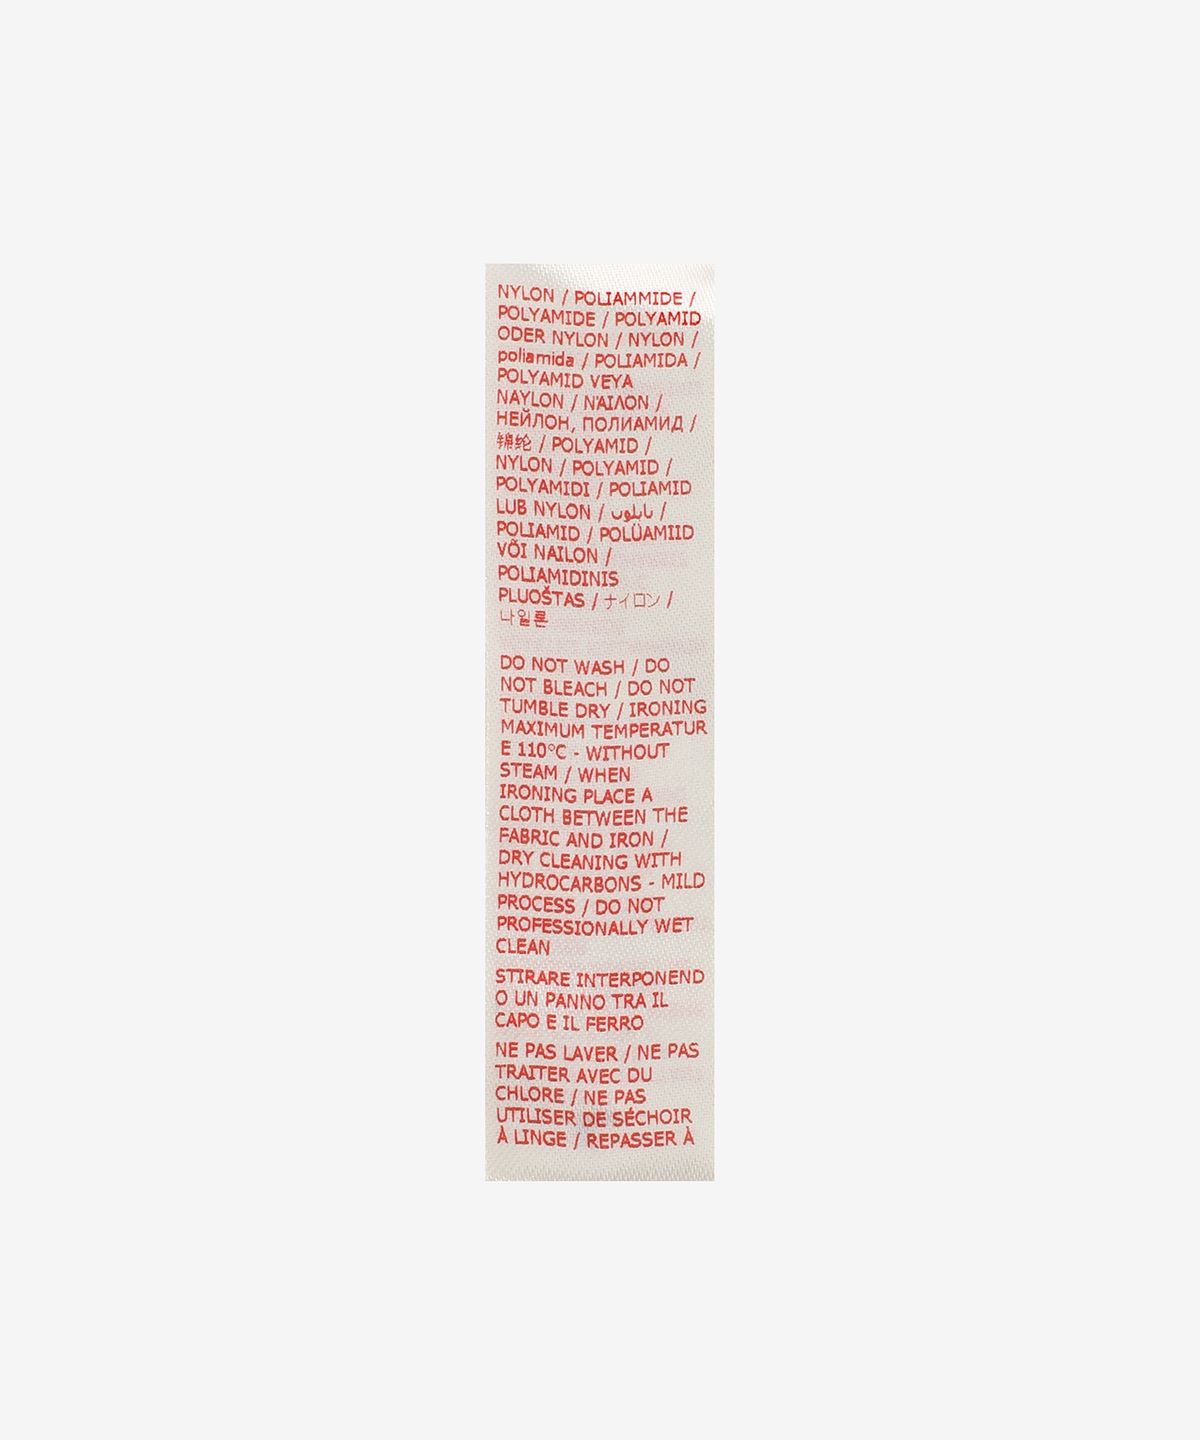 NYLON / POLIAMMIDE /
POLYAMIDE / POLYAMID
ODER NYLON / NYLON /
poliamida / POLIAMIDA /
POLYAMID VEYA
NAYLON / ΝΆΙΛΟΝ /
НЕЙЛОН, ПОЛИАМИД /
锦纶 / POLYAMID /
NYLON / POLYAMID /
POLYAMIDI / POLIAMID
LUB NYLON / نايلون /
POLIAMID / POLÜAMIID
VÕI NAILON /
POLIAMIDINIS
PLUOŠTAS / ナイロン /
나일론
DO NOT WASH / DO
NOT BLEACH / DO NOT
TUMBLE DRY / IRONING
MAXIMUM TEMPERATUR
E 110°C - WITHOUT
STEAM / WHEN
IRONING PLACE A
CLOTH BETWEEN THE
FABRIC AND IRON /
DRY CLEANING WITH
HYDROCARBONS - MILD
PROCESS / DO NOT
PROFESSIONALLY WET
CLEAN
STIRARE INTERPONEND
O UN PANNO TRA IL
CAPO E IL FERRO
NE PAS LAVER / NE PAS
TRAITER AVEC DU
CHLORE / NE PAS
UTILISER DE SÉCHOIR
À LINGE / REPASSER À